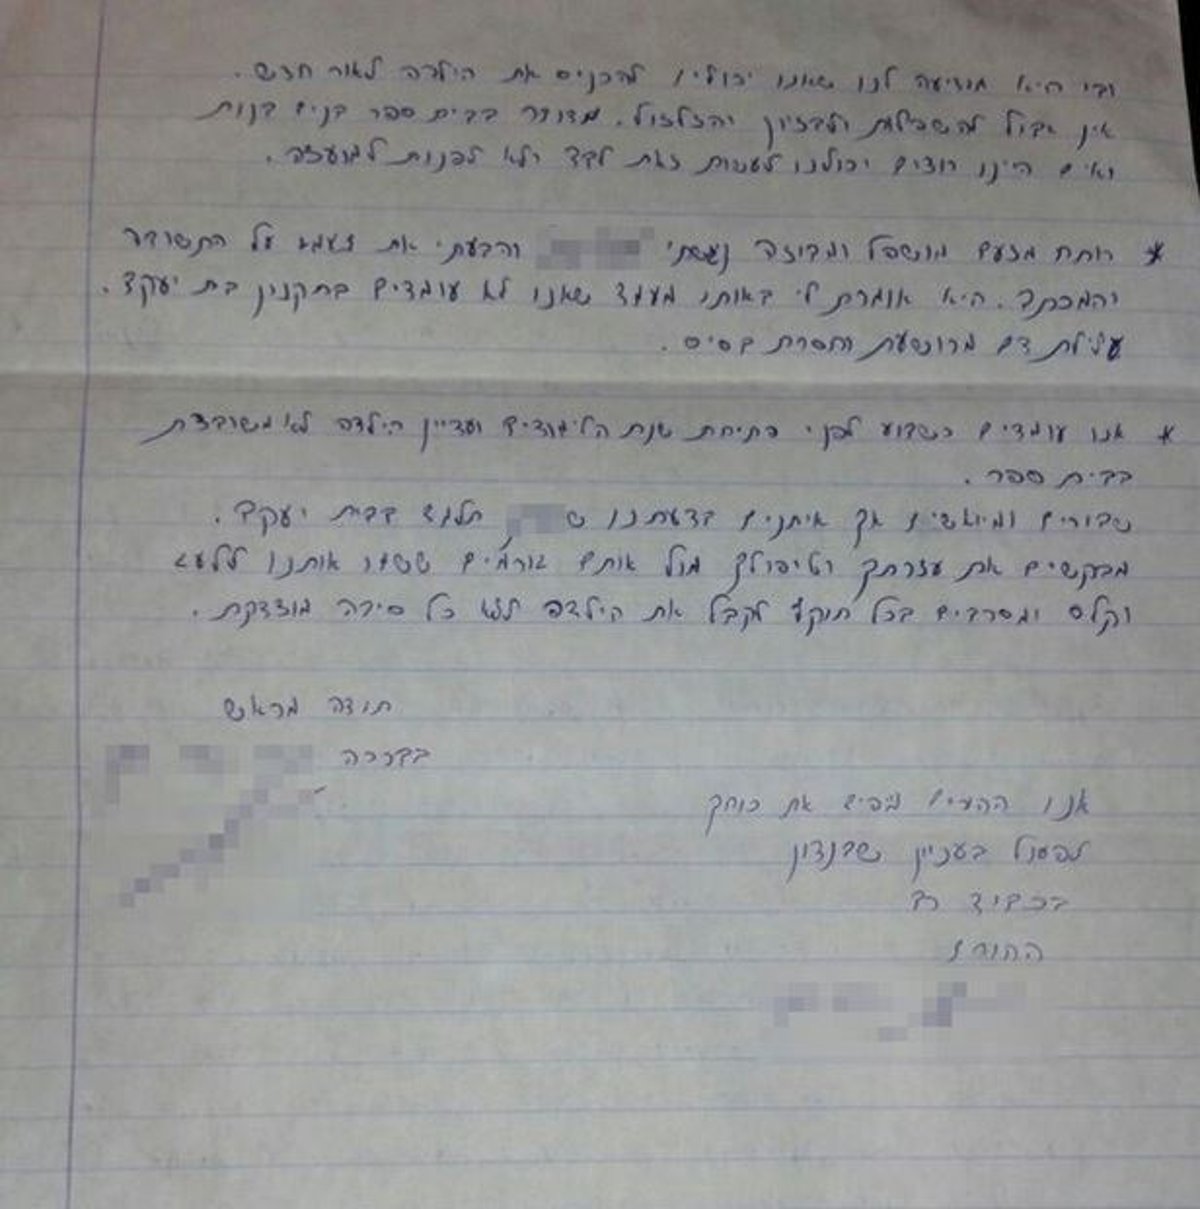 ובו היא מודיעה לנו שאנו יכולין להכניס את הילדה לאור חדש.
אין גבול להשפלות ולבזיון והזלזול. מדובר בבית ספר בנים בנות
ואים היינו רוצים יכולנו לעשות זאת לבד ולא לפנות לוועדה.
* רותח מזעם מושפל ומבוזה נגשתי והבעתי את זעמי על התשובה
והמכתב. היא אומרת לי באותו מעמד שאנו לא עומדים בתקנון בת יעקב.
עלילת דם מרושעת וחסרת בסיס.
* אנו עומדים כשבוע לפני פתיחת שנת הלימודים ועדיין הילדה לא משובצת
בבית ספר.
שבורים ומיואשים אך איתנים בדעתנו ש תלמד בבית יעקב.
מבקשים את עזרתך וטיפולך מול אותם גורמים ששמו אותנו ללעג
וקלס ומסרבים בכל תוקף לקבל את הילדה ללא כל סיבה מוצדקת.
תודה מראש
בברכה
אנו הח"מ את כוחך
לפעול בעניין שבנדון
בכבוד רב
ההורים